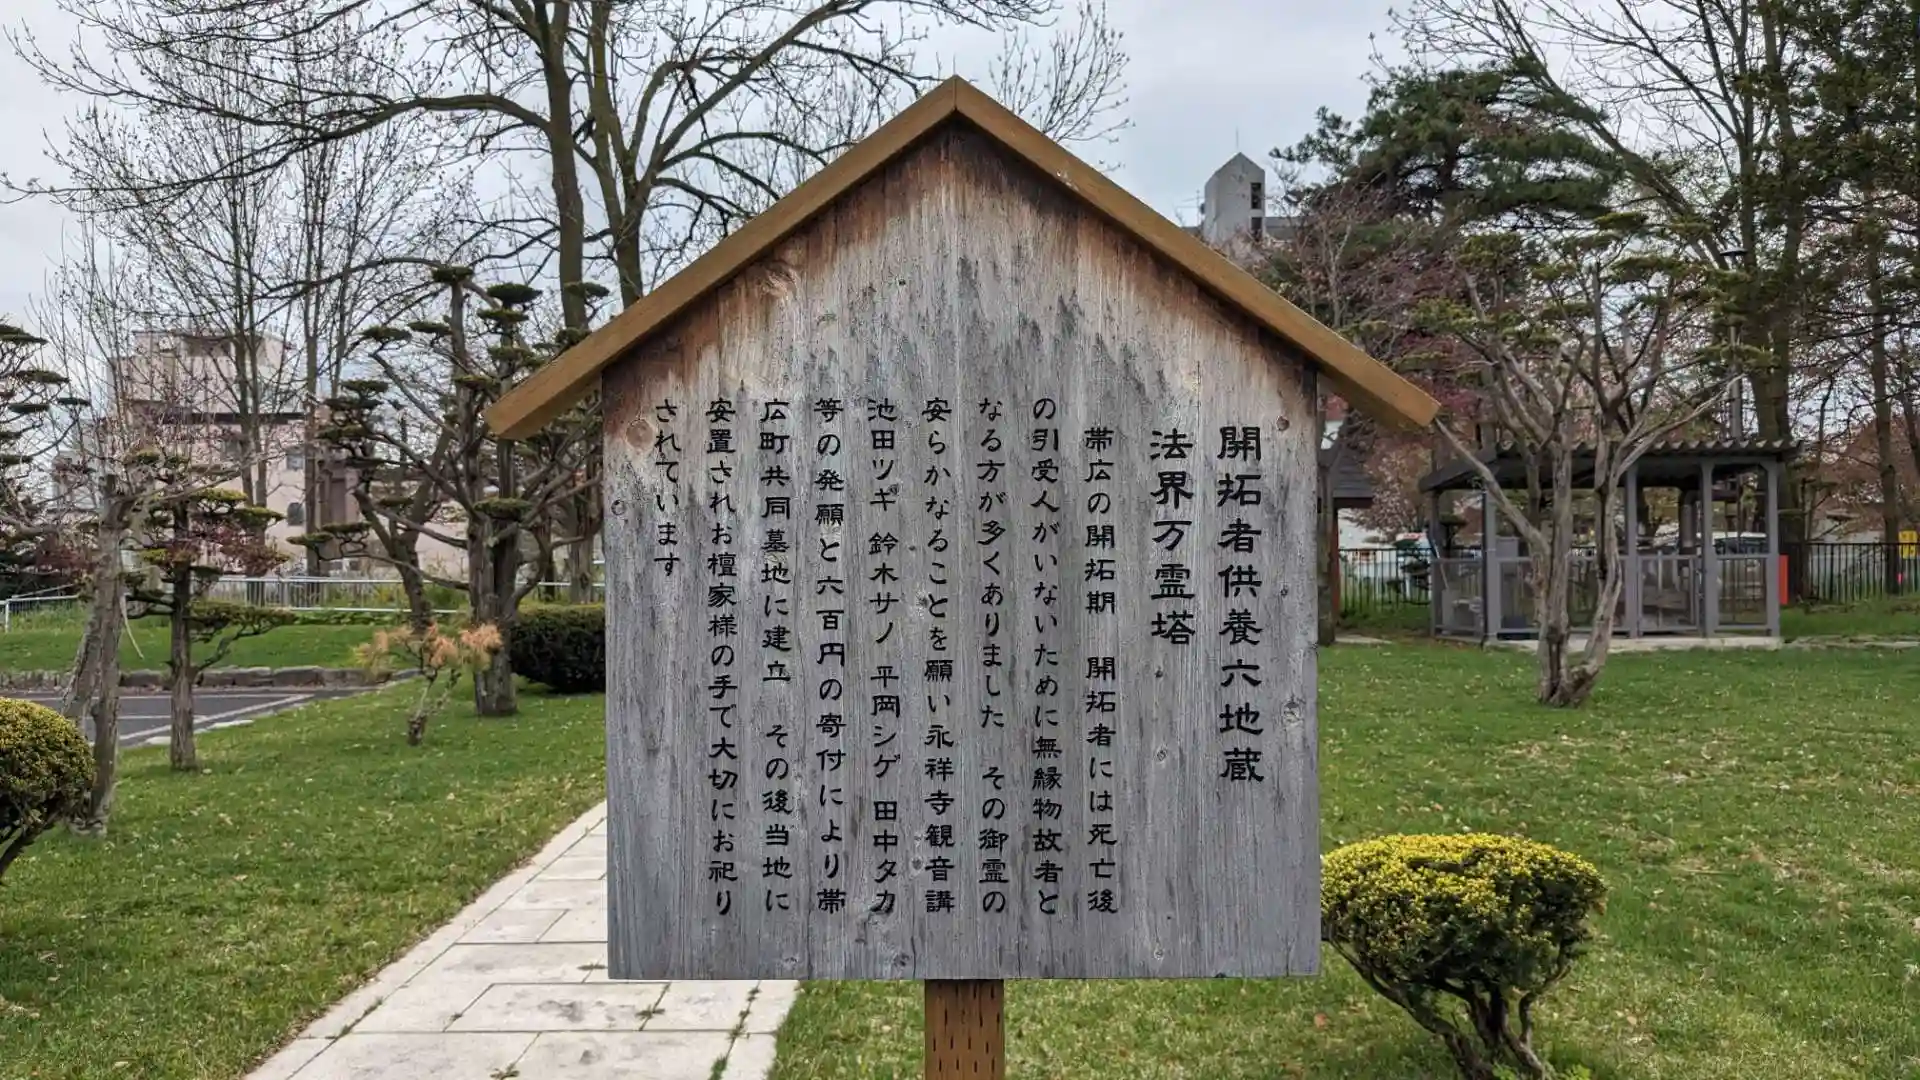 開拓者供養六地蔵
法界万霊塔
帯広の開拓期　開拓者には死亡後
の引受人がいないために無縁物故者と
なる方が多くありました　その御霊の
安らかなることを願い永祥寺観音講
池田ツギ　鈴木サノ　平岡シゲ　田中タカ
等の発願と六百円の寄付により帯
広町共同墓地に建立　その後当地に
安置されお檀家様の手で大切にお祀り
されています